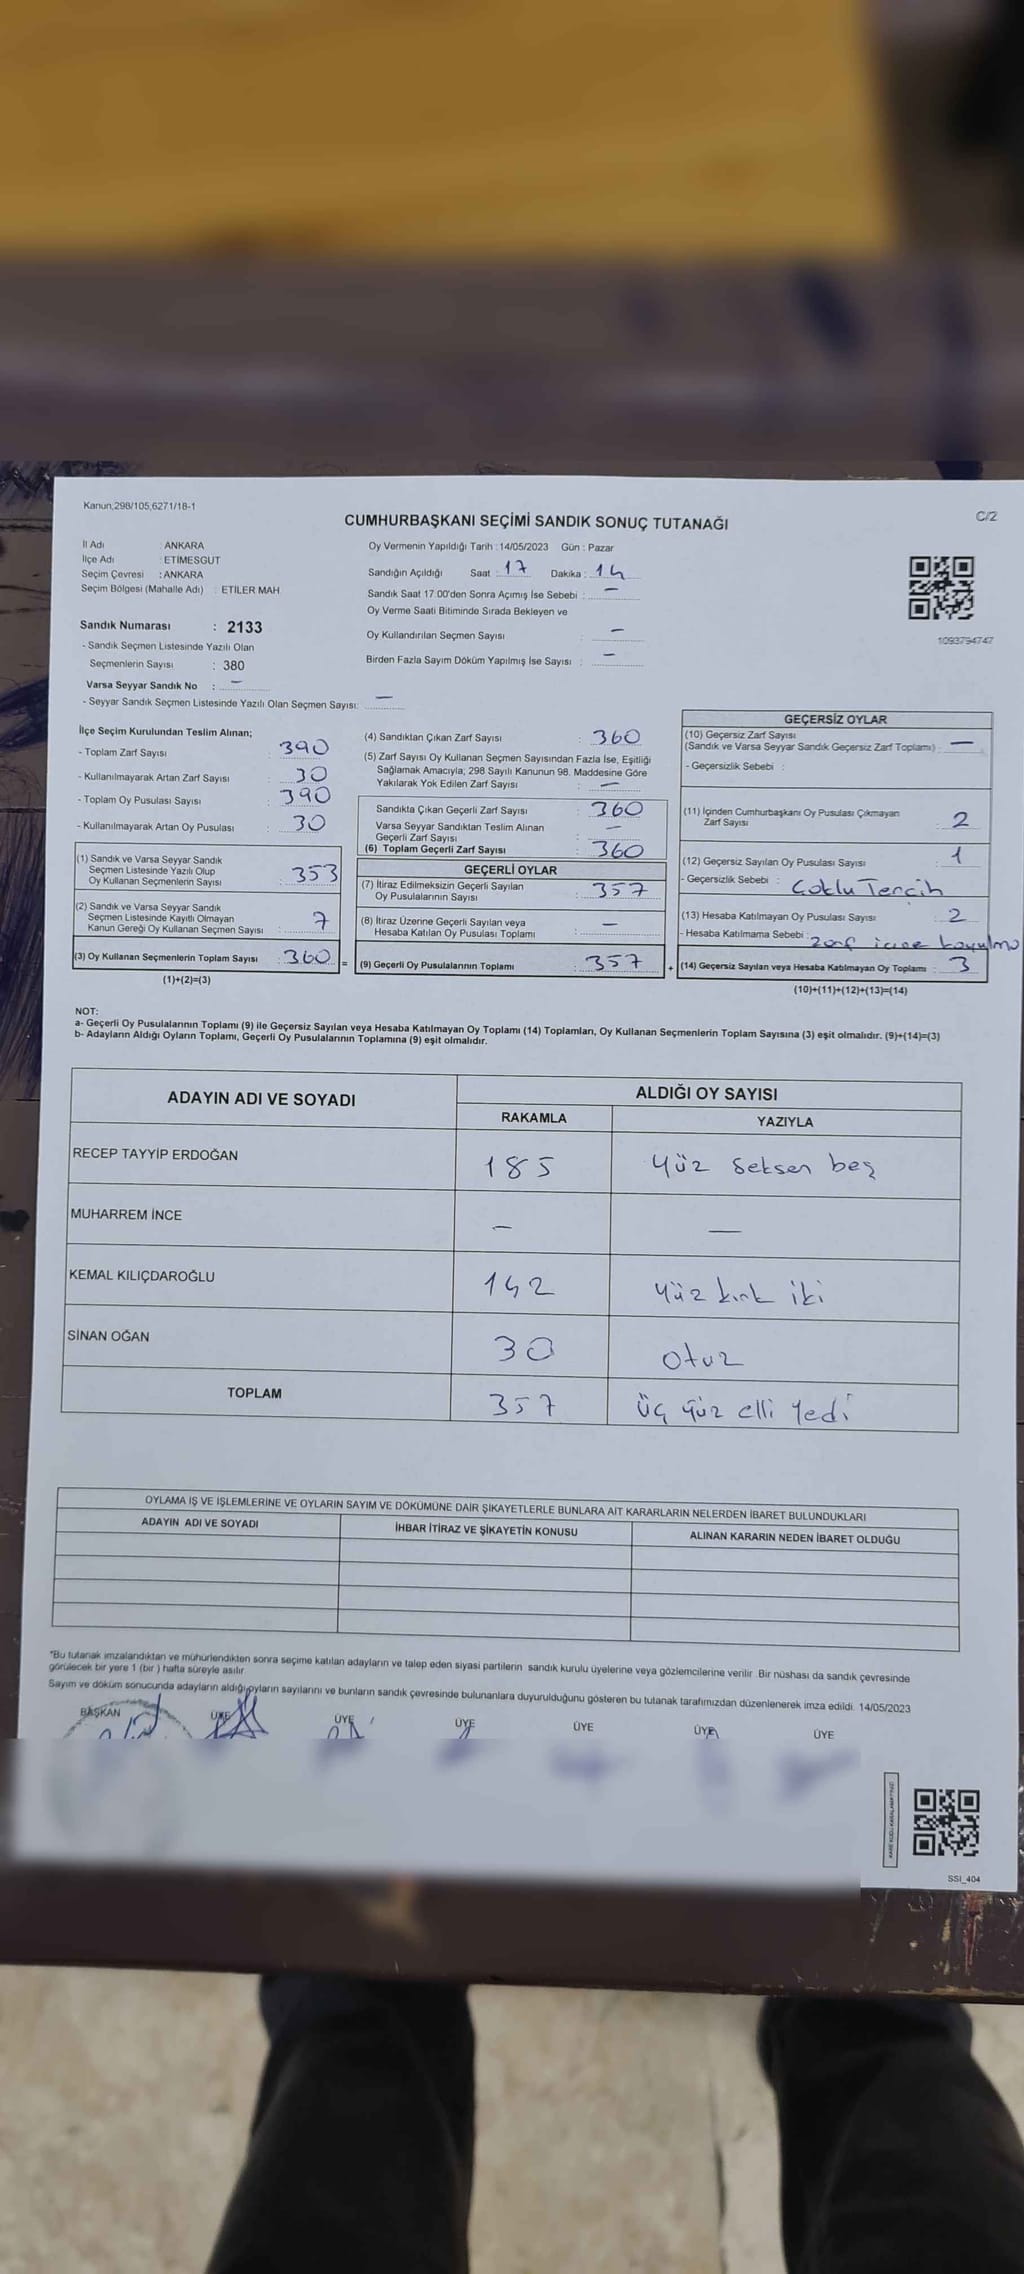 Kanun,298/105,6271/18-1
C/2
CUMHURBAŞKANI SEÇİMİ SANDIK SONUÇ TUTANAĞI
İl Adı : ANKARA
İlçe Adı : ETİMESGUT
Seçim Çevresi : ANKARA
Seçim Bölgesi (Mahalle Adı) : ETİLER MAH.
Sandık Numarası : 2133
- Sandık Seçmen Listesinde Yazılı Olan
Seçmenlerin Sayısı : 380
Varsa Seyyar Sandık No : —
- Seyyar Sandık Seçmen Listesinde Yazılı Olan Seçmen Sayısı: —
Oy Vermenin Yapıldığı Tarih : 14/05/2023 Gün : Pazar
Sandığın Açıldığı Saat : 17 Dakika : 14
Sandık Saat 17.00'den Sonra Açımış İse Sebebi : —
Oy Verme Saati Bitiminde Sırada Bekleyen ve
Oy Kullandırılan Seçmen Sayısı : —
Birden Fazla Sayım Döküm Yapılmış İse Sayısı : —
1093794747
İlçe Seçim Kurulundan Teslim Alınan;
- Toplam Zarf Sayısı : 390
- Kullanılmayarak Artan Zarf Sayısı : 30
- Toplam Oy Pusulası Sayısı : 390
- Kullanılmayarak Artan Oy Pusulası : 30
(1) Sandık ve Varsa Seyyar Sandık
Seçmen Listesinde Yazılı Olup
Oy Kullanan Seçmenlerin Sayısı : 353
(2) Sandık ve Varsa Seyyar Sandık
Seçmen Listesinde Kayıtlı Olmayan
Kanun Gereği Oy Kullanan Seçmen Sayısı : 7
(3) Oy Kullanan Seçmenlerin Toplam Sayısı : 360 =
(1)+(2)=(3)
(4) Sandıktan Çıkan Zarf Sayısı : 360
(5) Zarf Sayısı Oy Kullanan Seçmen Sayısından Fazla İse, Eşitliği
Sağlamak Amacıyla; 298 Sayılı Kanunun 98. Maddesine Göre
Yakılarak Yok Edilen Zarf Sayısı : —
Sandıkta Çıkan Geçerli Zarf Sayısı : 360
Varsa Seyyar Sandıktan Teslim Alınan
Geçerli Zarf Sayısı : —
(6) Toplam Geçerli Zarf Sayısı : 360
GEÇERLİ OYLAR
(7) İtiraz Edilmeksizin Geçerli Sayılan
Oy Pusulalarının Sayısı : 357
(8) İtiraz Üzerine Geçerli Sayılan veya
Hesaba Katılan Oy Pusulası Toplamı : —
(9) Geçerli Oy Pusulalarının Toplamı : 357 +
GEÇERSİZ OYLAR
(10) Geçersiz Zarf Sayısı
(Sandık ve Varsa Seyyar Sandık Geçersiz Zarf Toplamı) : —
- Geçersizlik Sebebi :
(11) İçinden Cumhurbaşkanı Oy Pusulası Çıkmayan
Zarf Sayısı : 2
(12) Geçersiz Sayılan Oy Pusulası Sayısı : 1
- Geçersizlik Sebebi : Çoklu Tercih
(13) Hesaba Katılmayan Oy Pusulası Sayısı : 2
- Hesaba Katılmama Sebebi : zarf içine koyulma
(14) Geçersiz Sayılan veya Hesaba Katılmayan Oy Toplamı : 3
(10)+(11)+(12)+(13)=(14)
NOT:
a- Geçerli Oy Pusulalarının Toplamı (9) ile Geçersiz Sayılan veya Hesaba Katılmayan Oy Toplamı (14) Toplamları, Oy Kullanan Seçmenlerin Toplam Sayısına (3) eşit olmalıdır. (9)+(14)=(3)
b- Adayların Aldığı Oyların Toplamı, Geçerli Oy Pusulalarının Toplamına (9) eşit olmalıdır.
ADAYIN ADI VE SOYADI
ALDIĞI OY SAYISI
RAKAMLA YAZIYLA
RECEP TAYYİP ERDOĞAN 185 Yüz Seksen beş
MUHARREM İNCE — —
KEMAL KILIÇDAROĞLU 142 Yüz kırk iki
SİNAN OĞAN 30 Otuz
TOPLAM 357 Üç Yüz elli Yedi
OYLAMA İŞ VE İŞLEMLERİNE VE OYLARIN SAYIM VE DÖKÜMÜNE DAİR ŞİKAYETLERLE BUNLARA AİT KARARLARIN NELERDEN İBARET BULUNDUKLARI
ADAYIN ADI VE SOYADI İHBAR İTİRAZ VE ŞİKAYETİN KONUSU ALINAN KARARIN NEDEN İBARET OLDUĞU
*Bu tutanak imzalandıktan ve mühürlendikten sonra seçime katılan adayların ve talep eden siyasi partilerin sandık kurulu üyelerine veya gözlemcilerine verilir. Bir nüshası da sandık çevresinde
görülecek bir yere 1 (bir ) hafta süreyle asılır.
Sayım ve döküm sonucunda adayların aldığı oyların sayılarını ve bunların sandık çevresinde bulunanlara duyurulduğunu gösteren bu tutanak tarafımızdan düzenlenerek imza edildi. 14/05/2023
BAŞKAN ÜYE ÜYE ÜYE ÜYE ÜYE ÜYE
SSI_404